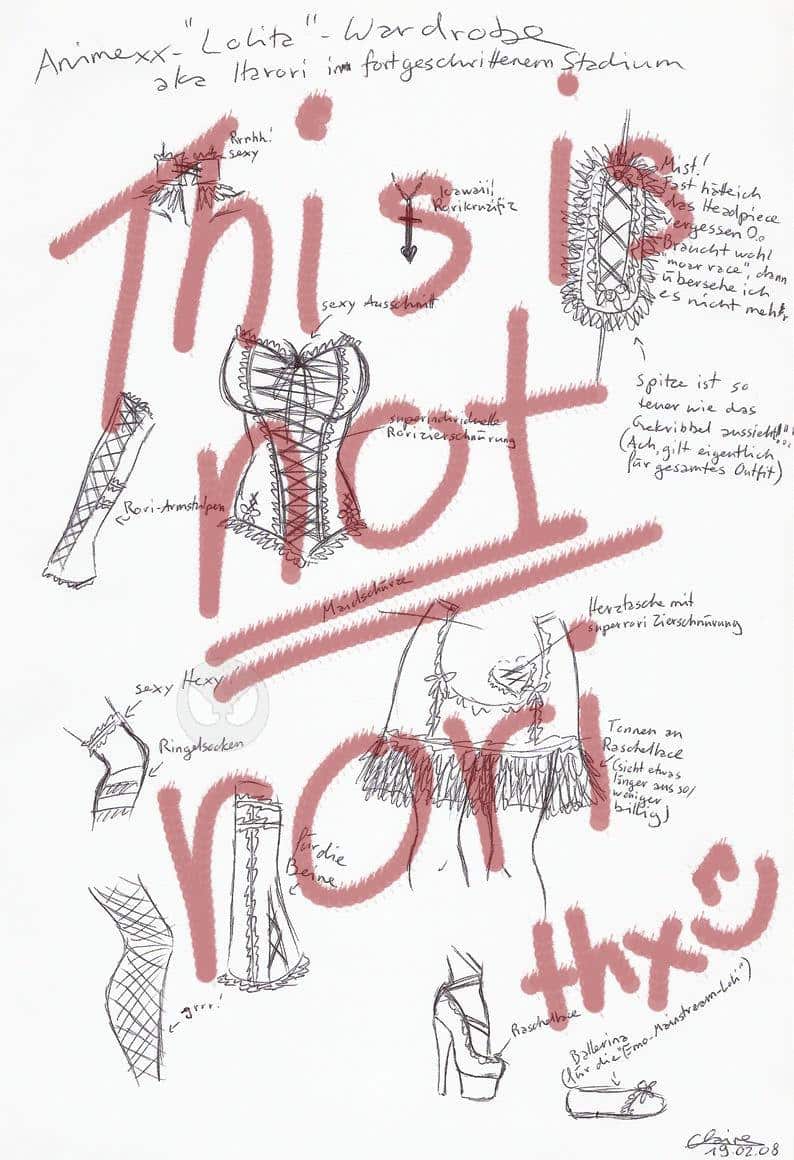 Animexx-"Lolita"-Wardrobe
aka Itarori im fortgeschrittenem Stadium
This is
not
rori
thx
Rrrhh!
sexy
kawaii!
Rorikruzifix
Mist!
Fast hätte ich
das Headpiece
vergessen O.o
Braucht wohl
"moar race", dann
übersehe ich
es nicht mehr
sexy Ausschnitt
Spitze ist so
teuer wie das
Gekribbel aussieht!!
(Ach, gilt eigentlich
für gesamtes Outfit)
superindividuelle
Rorizierschnürung
Rori-Armstulpen
Maidschürze
Herztasche mit
superrori Zierschnürung
sexy Hexy
Ringelsocken
Tonnen an
Raschellace
(sieht etwas
länger aus so/
weniger
billig)
für die
Beine
grrr!
Raschellace
Ballerina
(für die "Emo-Mainstream-Loli")
Claire
19.02.08